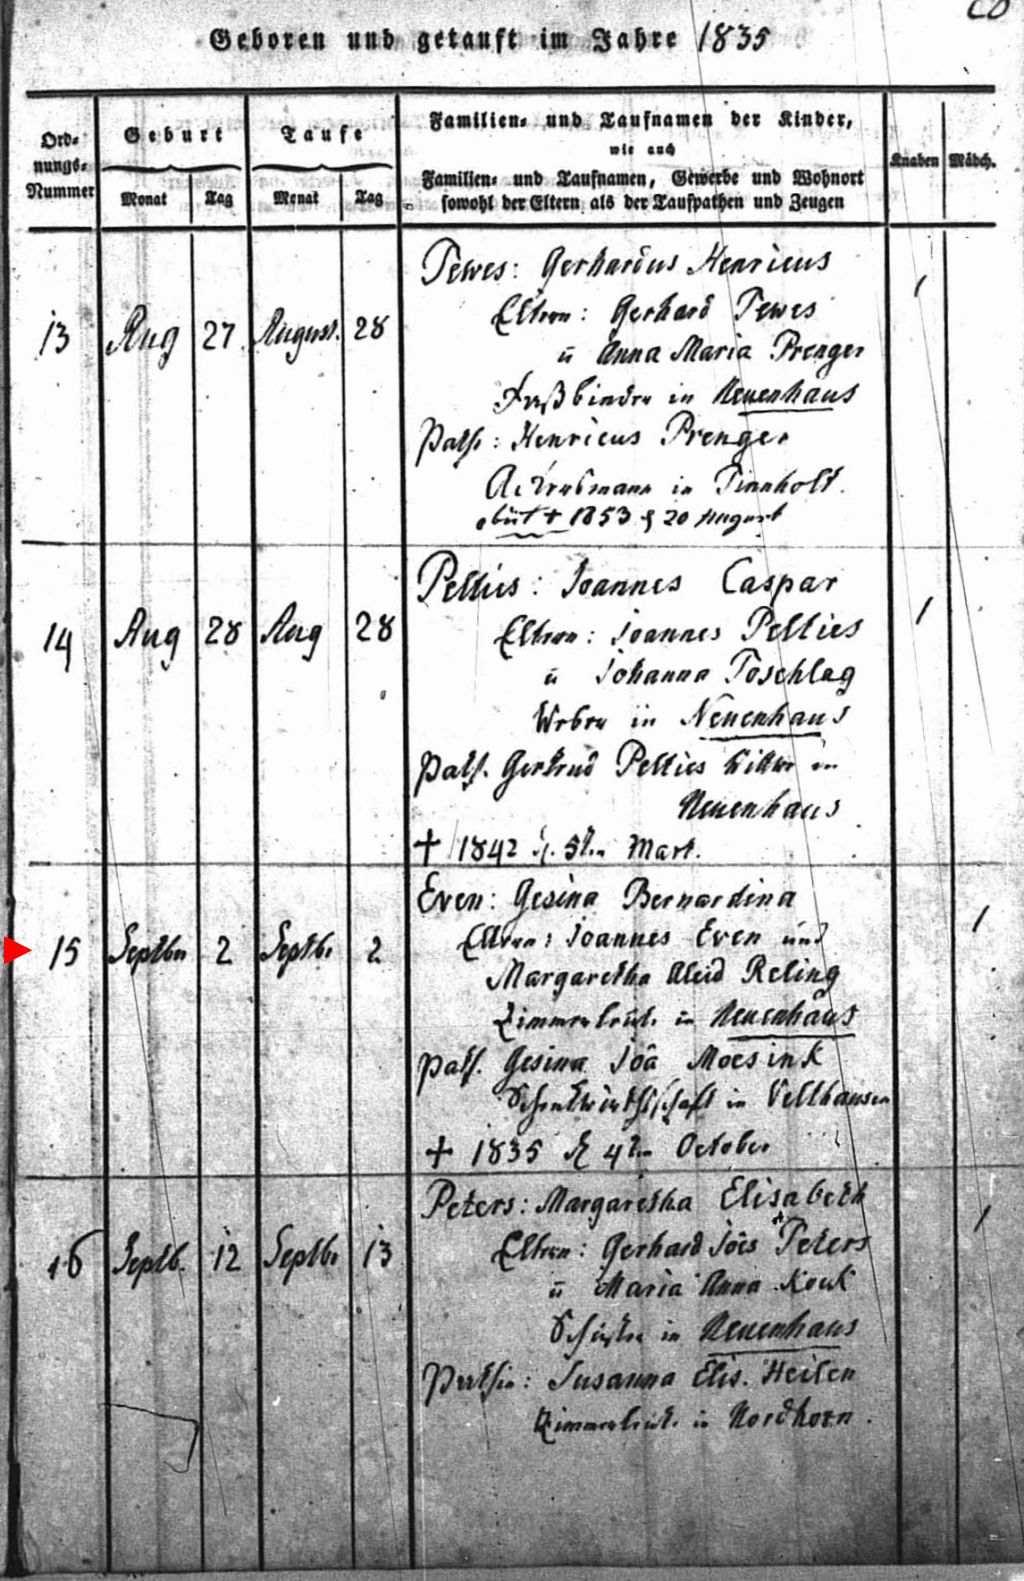 Geboren und getauft im Jahre 1835
Ord-
nungs-
Nummer
Geburt
Monat
Tag
Taufe
Monat
Tag
Familien- und Taufnamen der Kinder,
wie auch
Familien- und Taufnamen, Gewerbe und Wohnort
sowohl der Eltern als der Taufpathen und Zeugen
Knaben
Mädch.
13 Aug 27 August. 28
Tewes: Gerhardus Henricus
1
Eltern: Gerhard Tewes
ü Anna Maria Prenger
Faßbinder in Neuenhaus
Path: Henricus Prenger
Ackersmann in Tinnholt.
obiit + 1853 d 20 August
14 Aug 28 Aug 28
Pellies: Joannes Caspar
1
Eltern: Joannes Pellies
ü Johanna Toschlag
Weber in Neuenhaus
Path. Gertrud Pellies Wittwe in
Neuenhaus
+ 1842 d. 5ten Mart.
15 Septber 2 Septbr 2
Even: Gesina Bernardina
1
Eltern: Joannes Even und
Margaretha Aleid Reling
Zimmerleut. in Neuenhaus
Path. Gesina Joâ Moesink
Schenkwirthschaft in Vellhausen
+ 1835 d 4ten October
16 Septb. 12 Septbr 13
Peters: Margaretha Elisabeth
1
Eltern: Gerhard Joes Peters
ü Maria Anna Konk
Schuster in Neuenhaus
Pathin: Susanna Elis. Heilen
Zimmerleut. in Nordhorn.